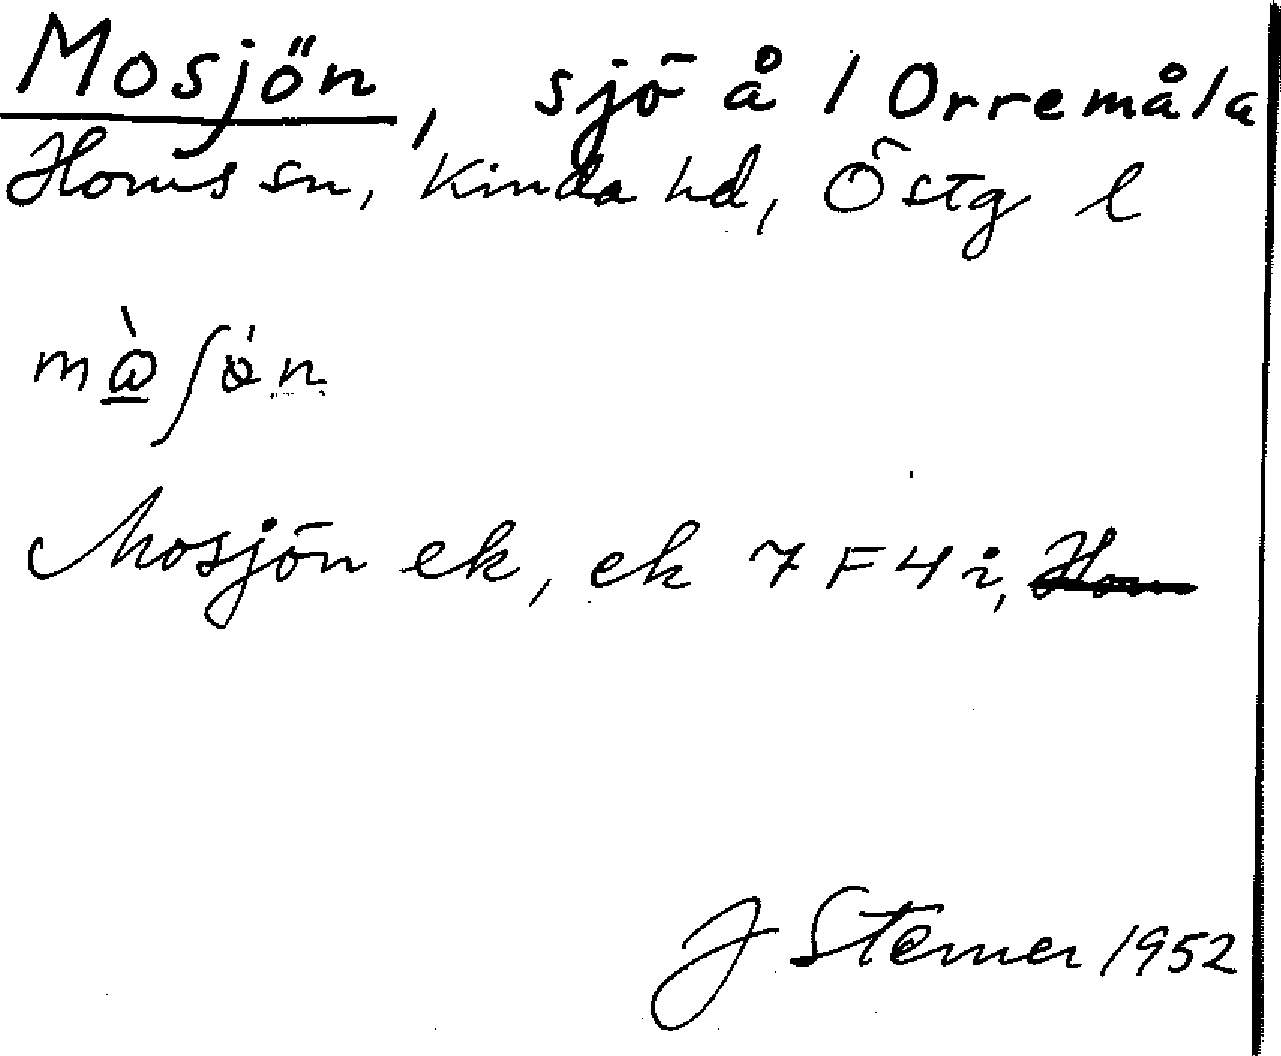 Mosjön, sjö å 1 Orremåla
Horns sn, Kinda hd, Östg l
Mosjön ek, ek 7 F 4 i,
J Sterner 1952